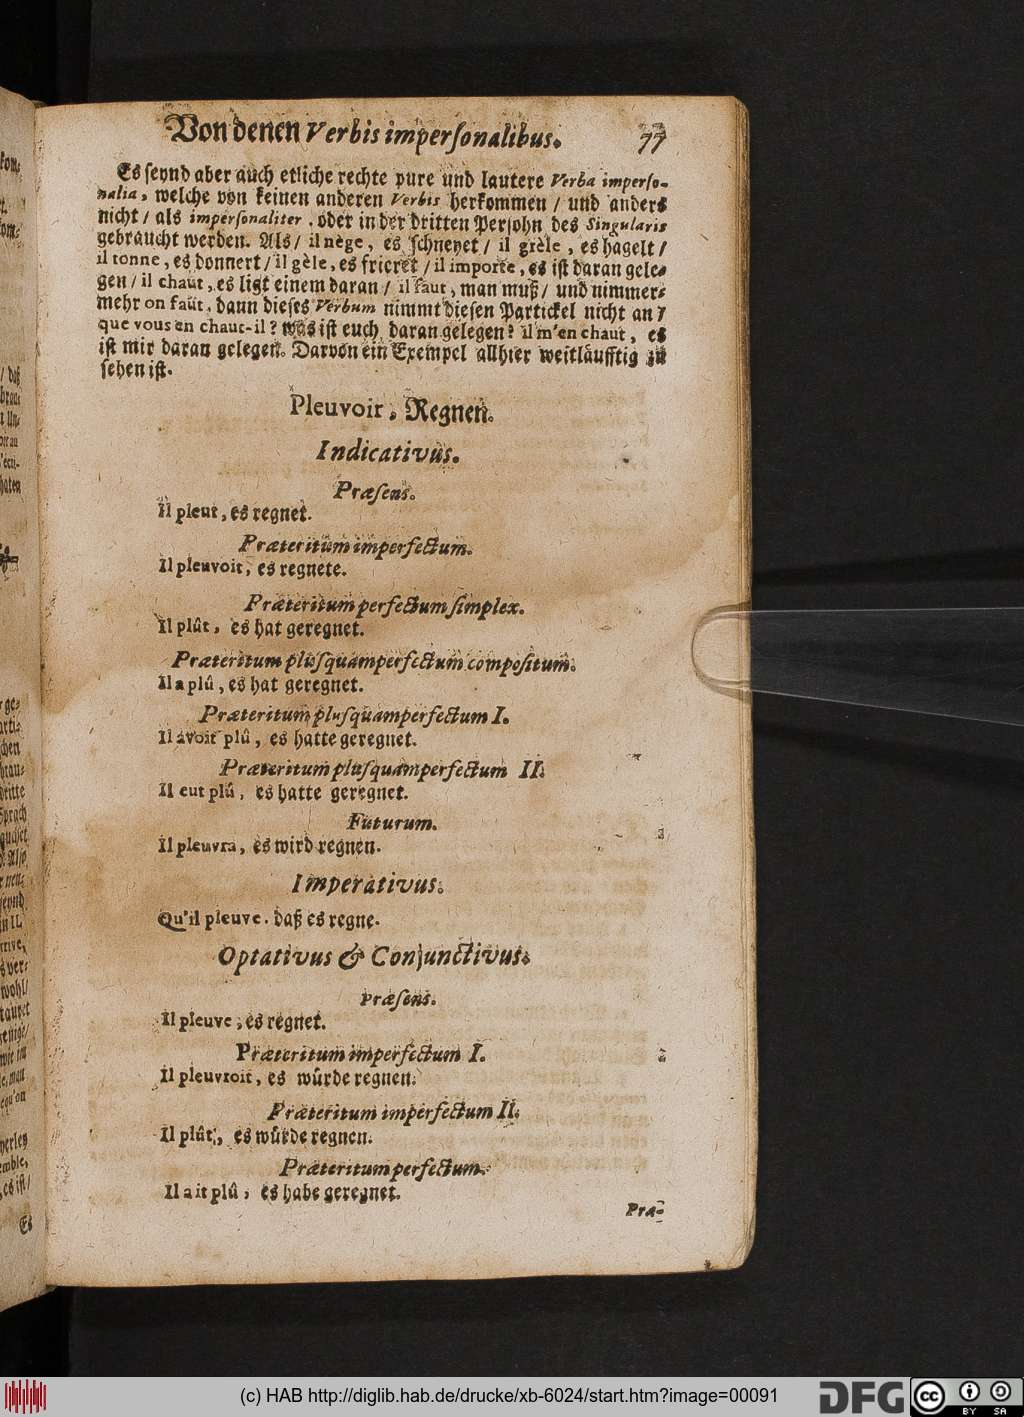 Von denen Verbis impersonalibus. 77
Es seynd aber auch etliche rechte pure und lautere Verba imperso-
nalia, welche von keinen anderen Verbis herkommen / und anders
nicht / als impersonaliter, oder in der dritten Persohn des Singularis
gebraucht werden. Als / il nège, es schneyet / il grèle, es hagelt /
il tonne, es donnert / il gèle, es frieret / il importe, es ist daran gele-
gen / il chaut, es ligt einem daran / il faut, man muß / und nimmer-
mehr on faut, dann dieses Verbum nimmt diesen Partickel nicht an /
que vous en chaut-il? was ist euch daran gelegen? il m'en chaut, es
ist mir daran gelegen. Darvon ein Exempel allhier weitläufftig zu
sehen ist.
Pleuvoir, Regnen.
Indicativus.
Præsens.
Il pleut, es regnet.
Præteritum imperfectum.
Il pleuvoit, es regnete.
Præteritum perfectum simplex.
Il plût, es hat geregnet.
Præteritum plusquamperfectum compositum.
Il a plû, es hat geregnet.
Præteritum plusquamperfectum I.
Il avoit plû, es hatte geregnet.
Præteritum plusquamperfectum II.
Il eut plû, es hatte geregnet.
Futurum.
Il pleuvra, es wird regnen.
Imperativus.
Qu'il pleuve. daß es regne.
Optativus & Conjunctivus.
Præsens.
Il pleuve, es regnet.
Præteritum imperfectum I.
Il pleuvroit, es würde regnen.
Præteritum imperfectum II.
Il plût, es würde regnen.
Præteritum perfectum.
Il ait plû, es habe geregnet.
Præ-
(c) HAB http://diglib.hab.de/drucke/xb-6024/start.htm?image=00091
DFG
cc BY SA